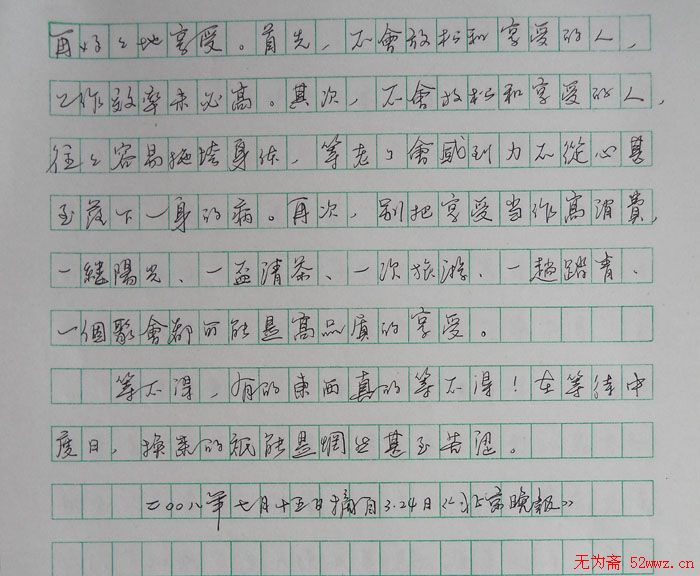 再好々地享受。首先，不會放松和享受的人，
工作效率未必高。其次，不會放松和享受的人，
往々容易拖垮身体，等老了會感到力不從心甚
至落下一身的病。再次，别把享受当作高消費，
一缕陽光、一盃清茶、一次旅游、一趟踏青、
一個聚會都可能是高品质的享受。
等不得，有的東西真的等不得！在等待中
度日，换来的祇能是惆怅甚至苦涩。
二〇〇八年七月十五日摘自3.24日《北京晚報》
无为斋 52wwz.cn